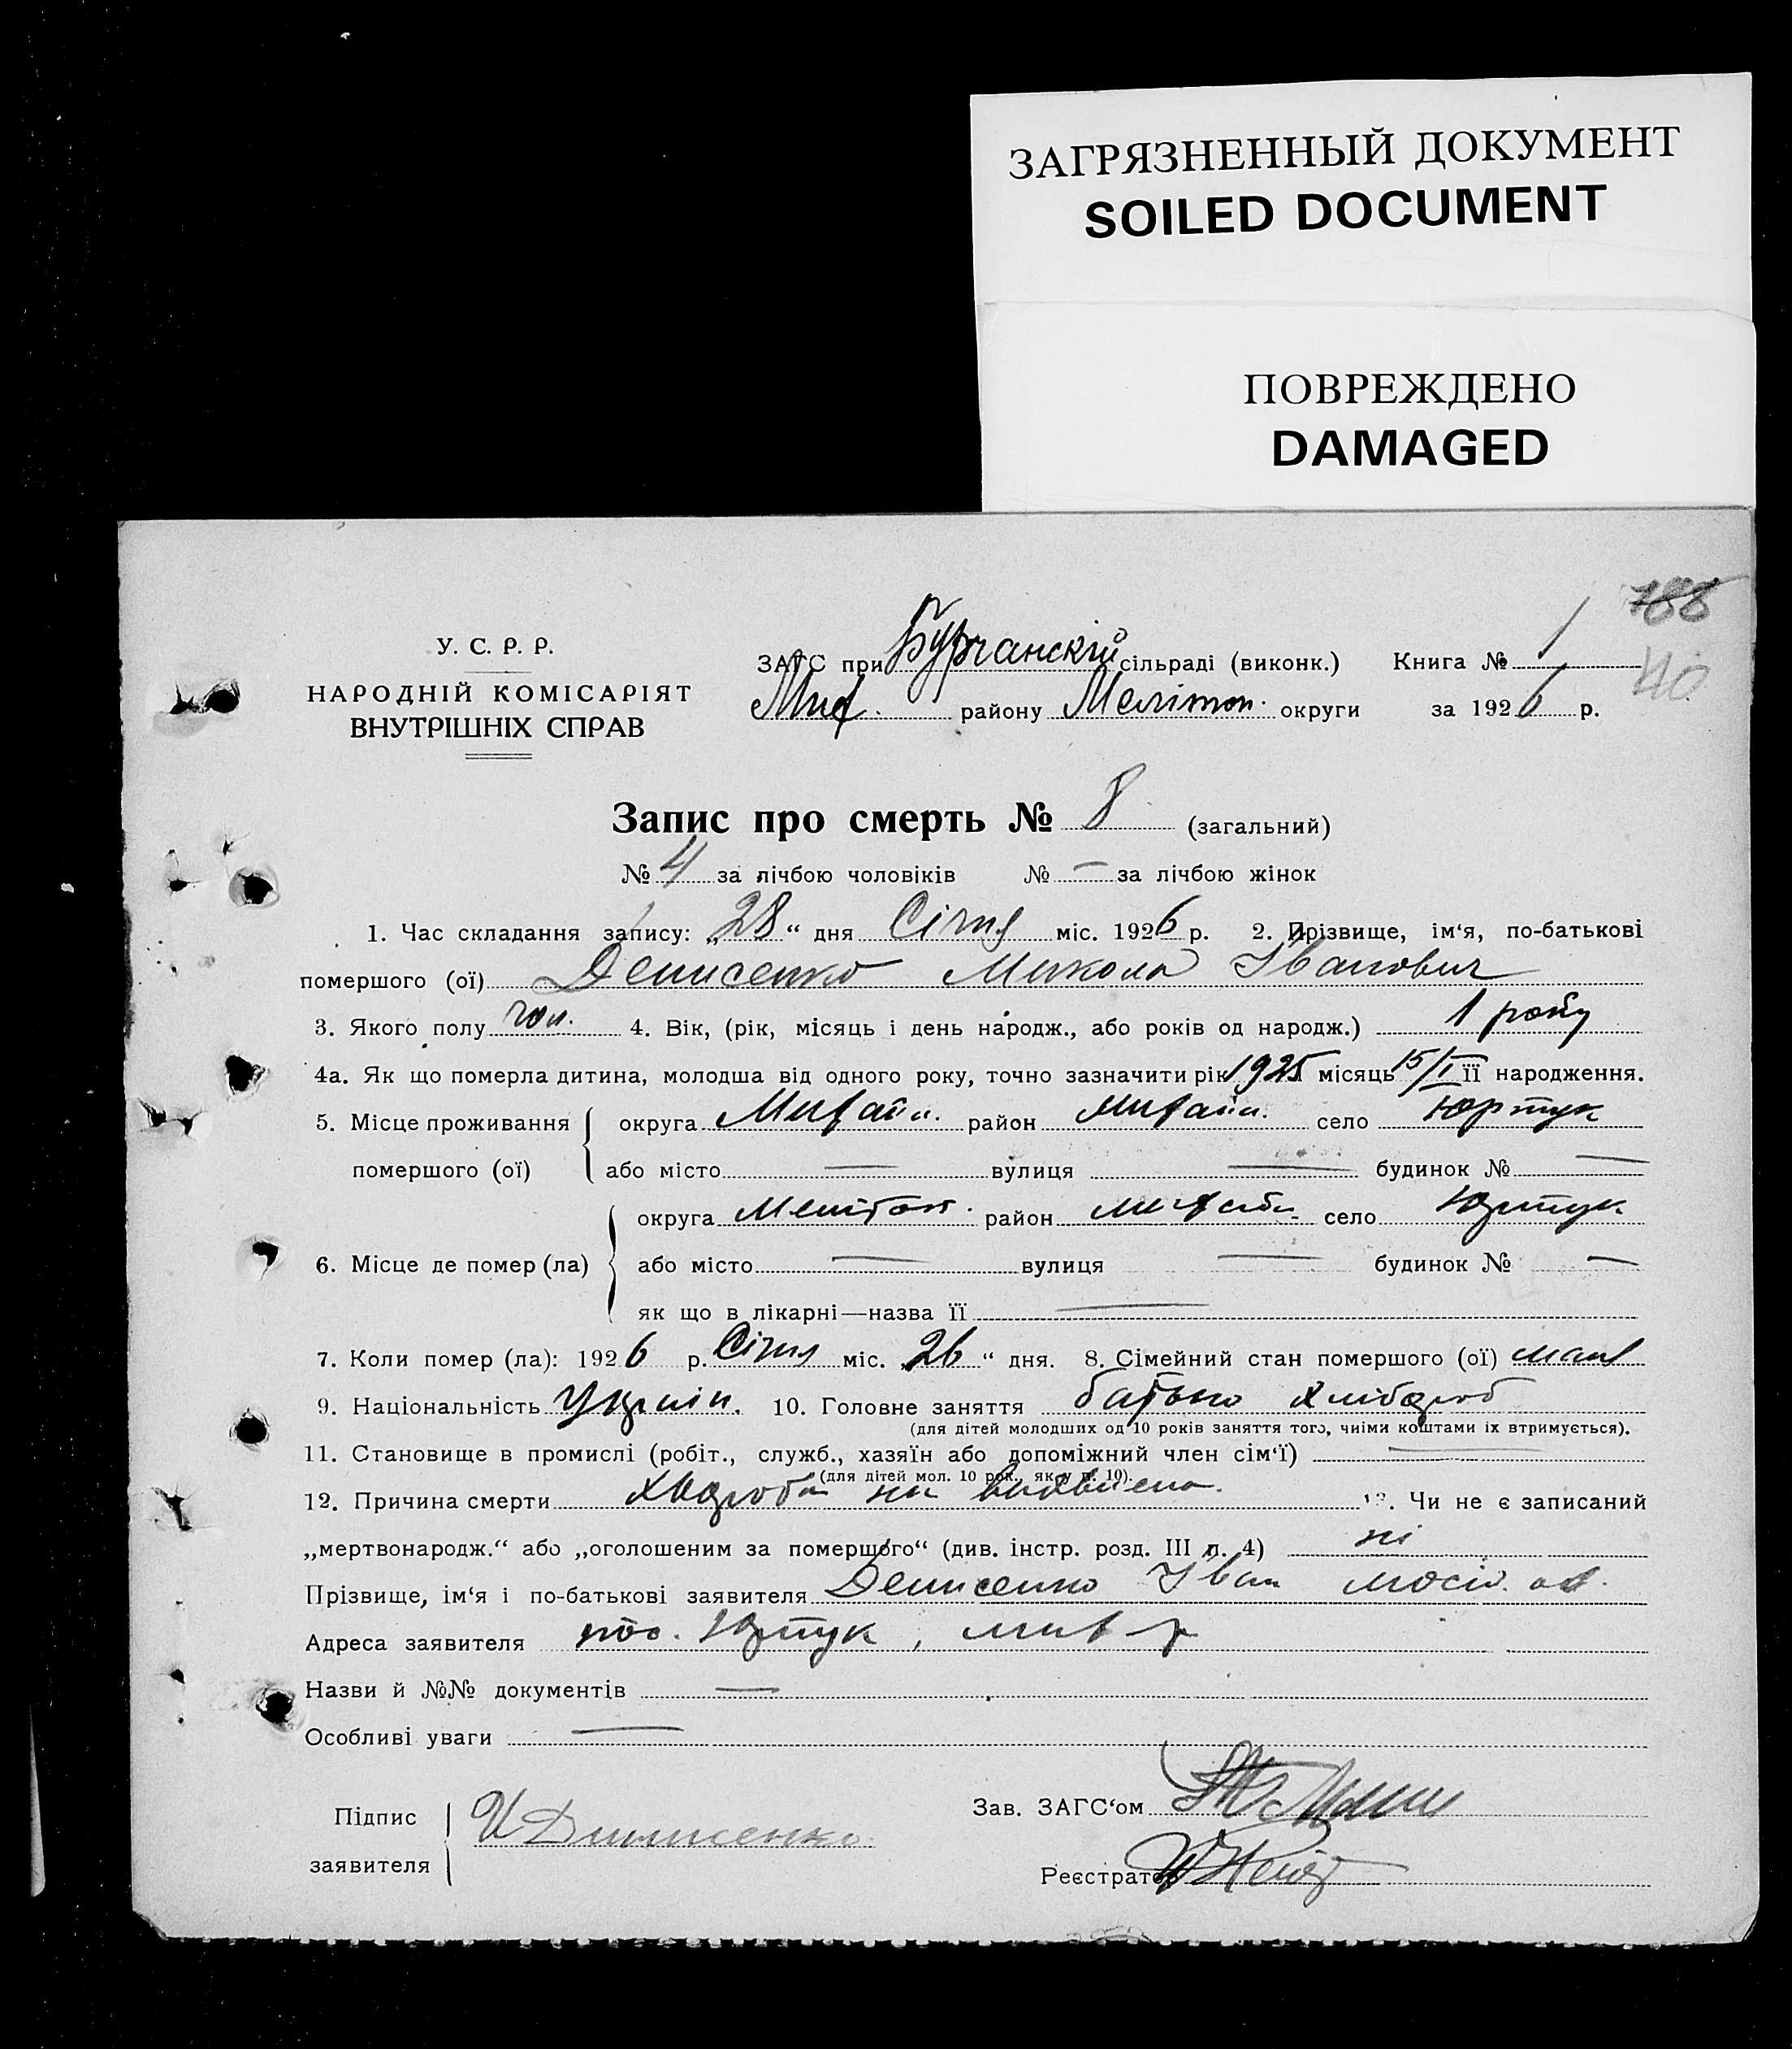 ЗАГРЯЗНЕННЫЙ ДОКУМЕНТ
SOILED DOCUMENT
ПОВРЕЖДЕНО
DAMAGED
188
40
У. С. Р. Р.
НАРОДНІЙ КОМІСАРІЯТ
ВНУТРІШНІХ СПРАВ
ЗАГС при Бурчанскій сільраді (виконк.) Книга № 1
Мих. району Мелітоп. округи за 1926 р.
Запис про смерть № 8 (загальний)
№ 4 за лічбою чоловіків № — за лічбою жінок
1. Час складання запису: „28“ дня Січня міс. 1926 р. 2. Прізвище, ім'я, по-батькові
помершого (ої) Денисенко Микола Іванович
3. Якого полу чол. 4. Вік, (рік, місяць і день народж., або років од народж.) 1 року
4а. Як що померла дитина, молодша від одного року, точно зазначити рік 1925 місяць 15/I її народження.
5. Місце проживання округа район село Юртук
помершого (ої) або місто — вулиця — будинок № —
округа Мелітоп. район село Юртук
6. Місце де помер (ла) або місто — вулиця — будинок № —
як що в лікарні—назва її —
7. Коли помер (ла): 1926 р. Січня міс. „26“ дня. 8. Сімейний стан помершого (ої)
9. Національність Україн. 10. Головне заняття батько хлібороб
(для дітей молодших од 10 років заняття того, чиїми коштами їх втримується).
11. Становище в промислі (робіт., служб., хазяїн або допоміжний член сім'ї) —
(для дітей мол. 10 рок., як у п. 10).
12. Причина смерти Хвороба не виявлена. 13. Чи не є записаний
„мертвонародж.“ або „оголошеним за помершого“ (див. інстр. розд. III п. 4) ні
Прізвище, ім'я і по-батькові заявителя Денисенко Іван
Адреса заявителя пос. Юртук, мих р
Назви й №№ документів —
Особливі уваги —
Підпис
заявителя И Денисенко
Зав. ЗАГС'ом
Реєстратор